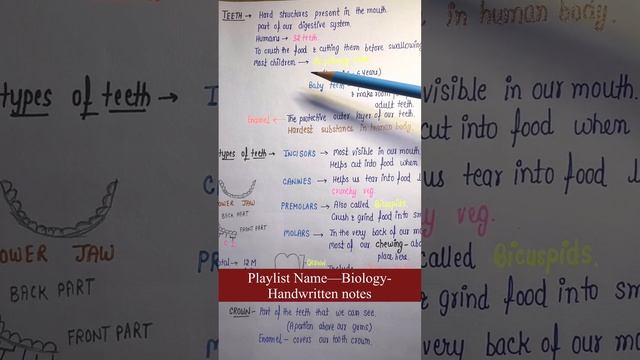 TEETH → Hard structures present in the mouth.
part of our digestive system.
Humans → 32 teeth.
To crush the food & cutting them before swallowing
Most children →
years)
Baby teeth
& make room
adult teeth.
Enamel ← The protective outer layer of our teeth.
Hardest substance in human body.
types of teeth → INCISORS → Most visible in our mouth.
Helps cut into food when
CANINES → Helps us tear into food
crunchy veg.
LOWER JAW
PREMOLARS → Also called Bicuspids.
BACK PART
Crush & grind food into sm
FRONT PART
MOLARS → In the very back of our m
C I
Most of our chewing
place here.
Total → 12 M
CROWN
Include
Playlist Name—Biology-
Handwritten notes
CROWN - Part of the teeth that we can see.
(A portion above our gums)
Enamel - covers our tooth crown.
types of teeth →
OWER JAW
BACK PART
FRONT PART
in human body.
visible in our mouth.
cut into food when
us tear into food
veg.
called Bicuspids.
& grind food into sm
very back of our m